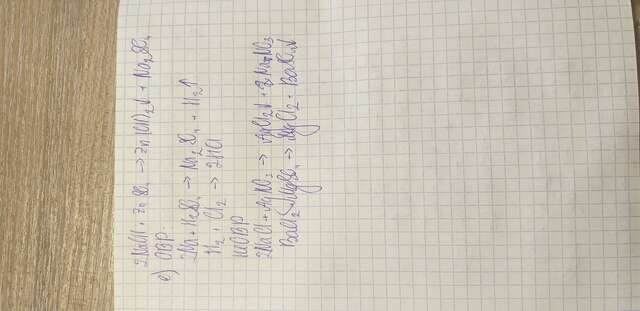 2NaOH + ZnSO₄ → Zn(OH)₂↓ + Na₂SO₄
ОВР
e)
2Na + H₂SO₄ → Na₂SO₄ + H₂↑
H₂ + Cl₂ → 2HCl
НЕОВР
2NaCl + AgNO₃ → AgCl₂↓ + 2NaNO₃
BaCl₂ + MgSO₄ → MgCl₂ + BaSO₄↓